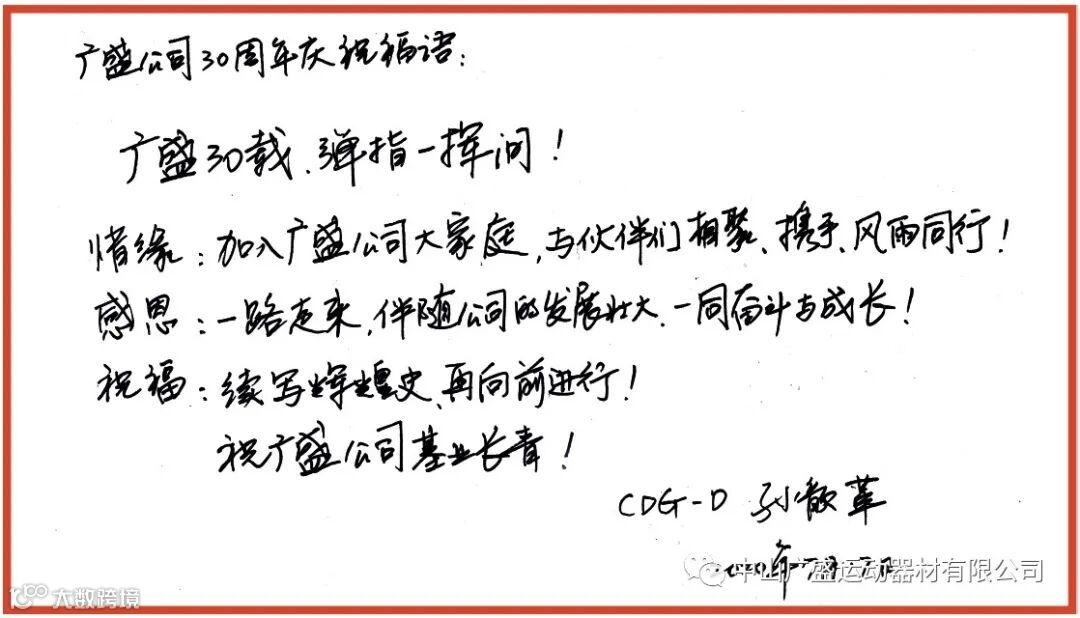 广盛公司30周年庆祝福语:
广盛30载、弹指一挥间!
情缘:加入广盛公司大家庭,与伙伴们相聚、携手、风雨同行!
感恩:一路走来,伴随公司的发展壮大、一同奋斗与成长!
祝福:续写辉煌史、再向前进行!
祝广盛公司基业长青!
CDG-D 孙
中山广盛运动器材有限公司
大数跨境